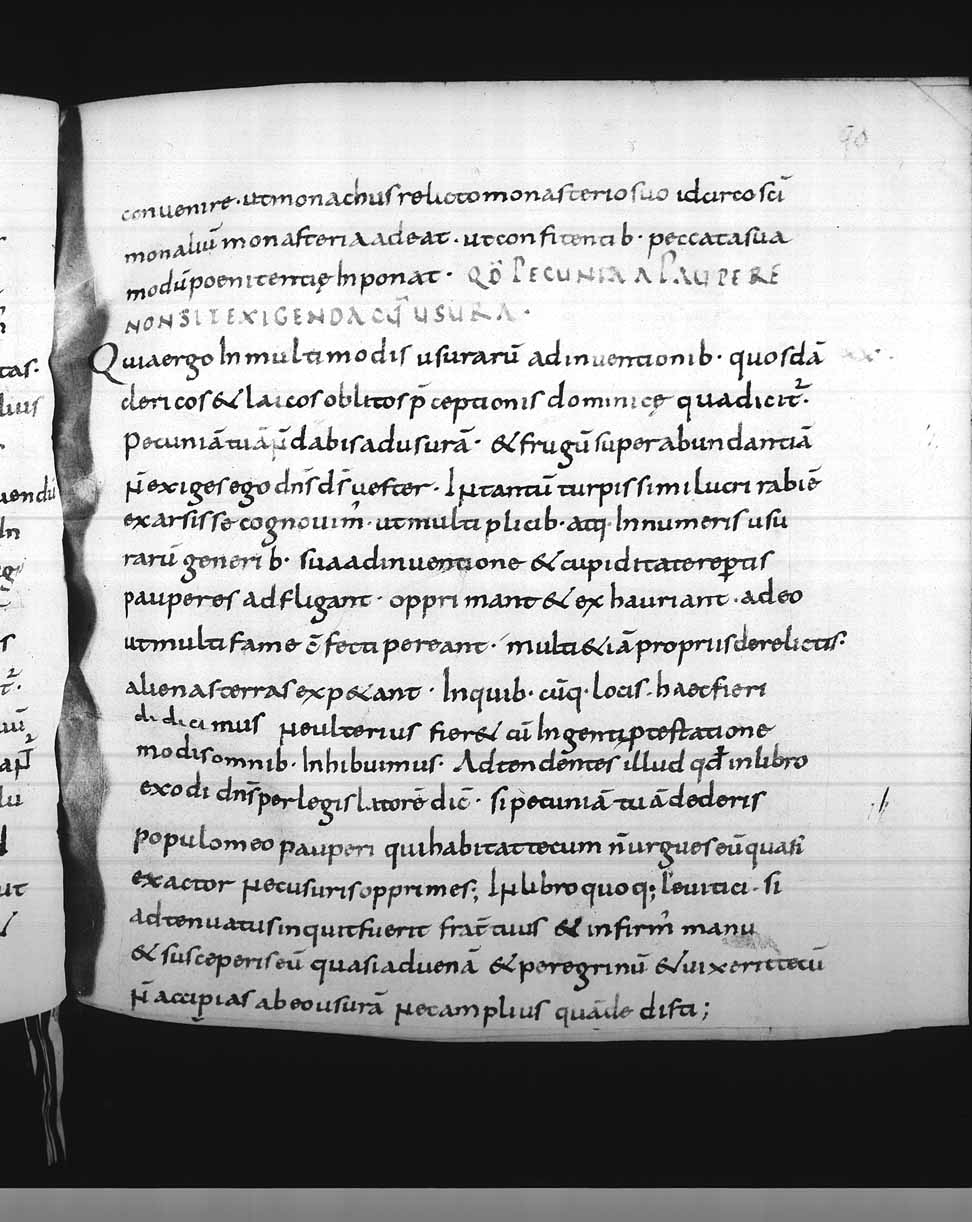 90
convenire · ut monachus relicto monasterio suo idcirco sci̅
monaliu̅ monasteria adeat · ut confitentib· peccata sua
modu̅ poenitentię Inponat · QD̅ PECUNIA A PAUPERE
NON SIT EXIGENDA CU̅ USURA ·
Quia ergo In multimodis usuraru̅ adinventionib· quosda̅
clericos & laicos oblitos p̅ceptionis dominicę qua dicit̉·
Pecunia̅ tua̅ n̅ dabis ad usura̅ · & frugu̅ superabundantia̅
n̅ exiges ego dn̅s ds̅ vester · In tantu̅ turpissimi lucri rabie̅
exarsisse cognovim̉ · ut multiplicib· atq· Innumeris usu
raru̅ generib· sua adinventione & cupiditate repertis
pauperes adfligant · opprimant & exhauriant · adeo
ut multi fame c̅fecti pereant · multi & ia̅ propriis derelictis·
alienas terras exp&ant · Inquib· cu̅q· locis · haec fieri
didicimus ne ulterius fier& cu̅ Ingenti ptestatione
modis omnib· Inhibuimus · Adtendentes illud qd̅ in libro
exodi dn̅s per legislatore̅ dic̅ · si pecunia̅ tua̅ dederis
populo meo pauperi qui habitat tecum n̅ urgues eu̅ quasi
exactor nec usuris opprimes; In libro quoq; levitici · si
adtenuatus inquit fuerit frat̅ tuus & infirm̉ manu
& susceperis eu̅ quasi advena̅ & peregrinu̅ & vixerit tecu̅
n̅ accipias ab eo usura̅ nec amplius qua̅ dedisti;